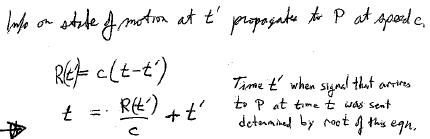 Info on state of motion at t' propagates to P at speed c.
R(t') = c(t-t')
t = R(t')/c + t'
Time t' when signal that arrives
to P at time t was sent
determined by root of this eqn.